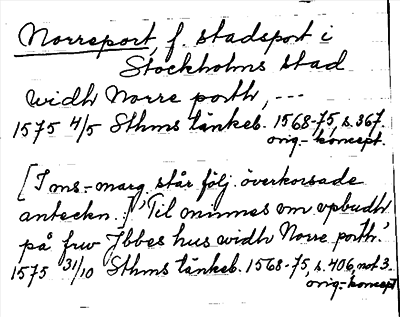 Norreport, f. stadsport i
Stockholms stad
widh Norre porth, ---
1575 4/5 Sthms tänkeb. 1568-75, s. 367.
orig.-koncept.
[I ms.-marg. står följ. överkorsade
anteckn.:] 'Til minnes om vpbudh
på frw Ebbes hus widh Norre porth.'
1575 31/10 Sthms tänkeb. 1568-75, s. 406, not 3.
orig.-koncept